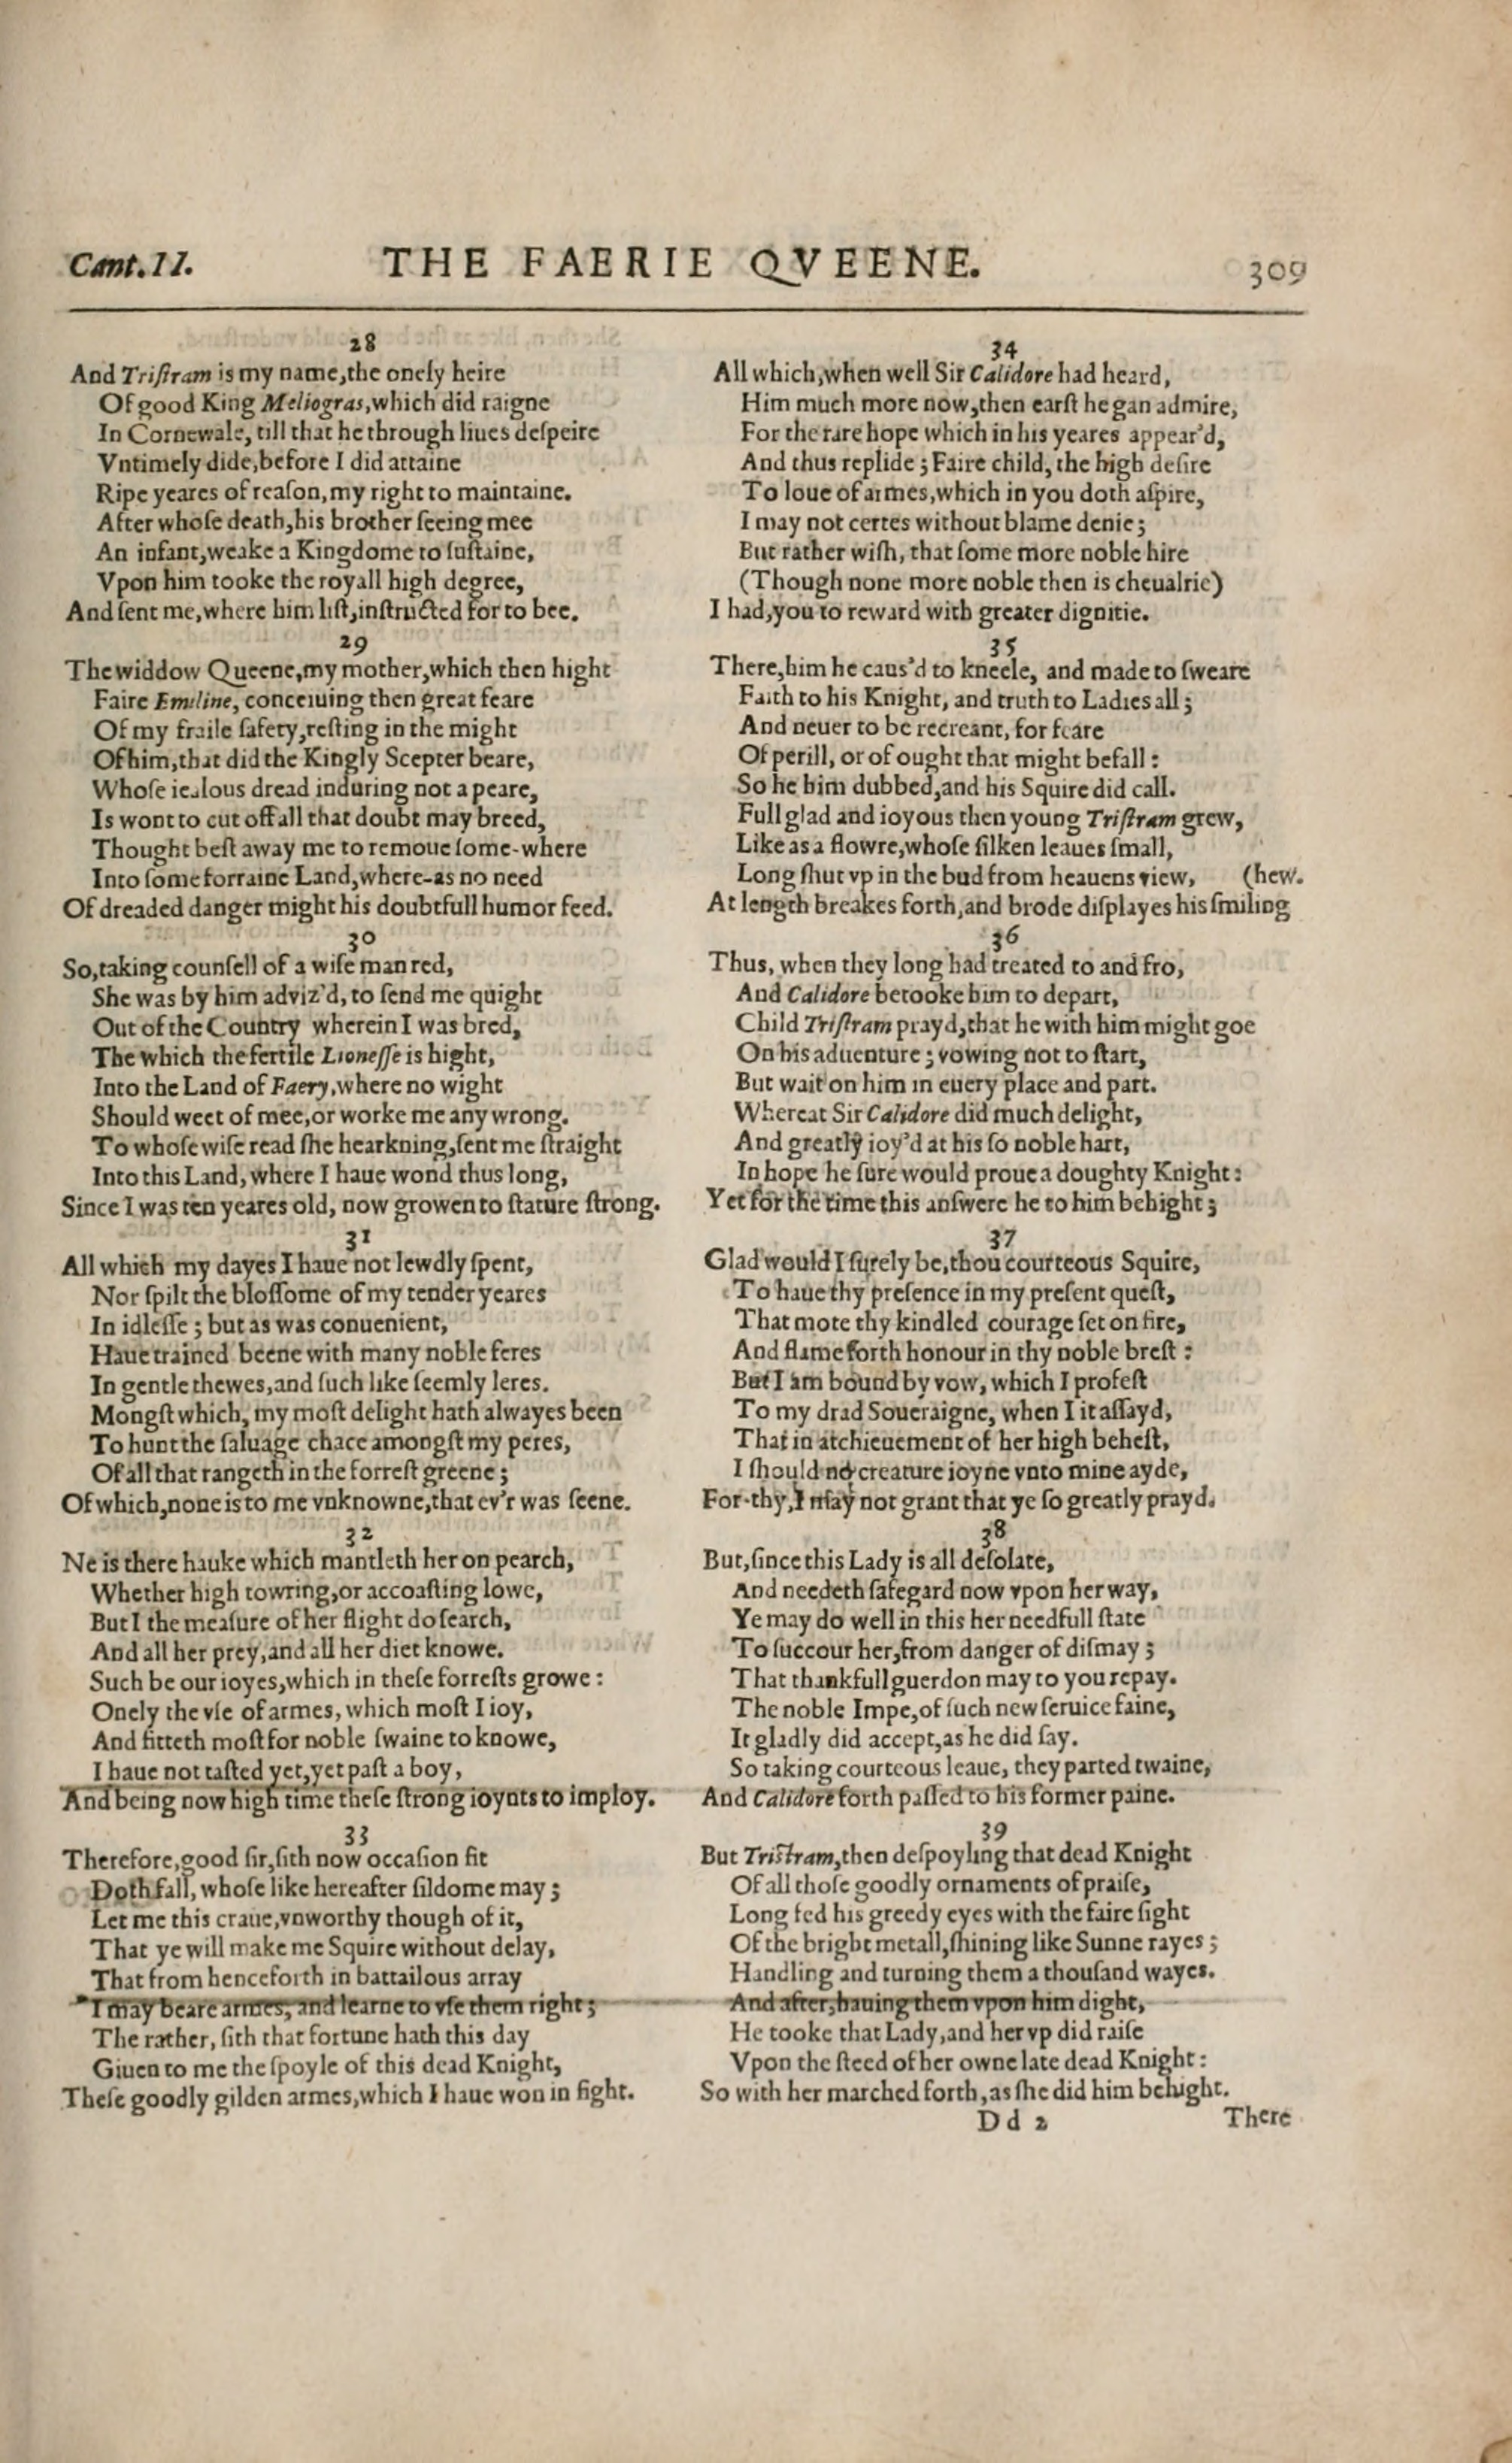 Cant. II. THE FAERIE QVEENE. 309
28
And Triſtram is my name, the onely heire
Of good King Meliogras, which did raigne
In Cornewale, till that he through liues deſpeire
Vntimely dide, before I did attaine
Ripe yeares of reaſon, my right to maintaine.
After whoſe death, his brother ſeeing mee
An infant, weake a Kingdome to ſuſtaine,
Vpon him tooke the royall high degree,
And ſent me, where him liſt, inſtructed for to bee.
29
The widdow Queene, my mother, which then hight
Faire Emiline, conceiuing then great feare
Of my fraile ſafety, reſting in the might
Of him, that did the Kingly Scepter beare,
Whoſe iealous dread induring not a peare,
Is wont to cut off all that doubt may breed,
Thought beſt away me to remoue ſome-where
Into ſome forraine Land, where-as no need
Of dreaded danger might his doubtfull humor feed.
30
So, taking counſell of a wiſe man red,
She was by him adviz'd, to ſend me quight
Out of the Country wherein I was bred,
The which the fertile Lioneſſe is hight,
Into the Land of Faery, where no wight
Should weet of mee, or worke me any wrong.
To whoſe wiſe read ſhe hearkning, ſent me ſtraight
Into this Land, where I haue wond thus long,
Since I was ten yeares old, now growen to ſtature ſtrong.
31
All which my dayes I haue not lewdly ſpent,
Nor ſpilt the bloſſome of my tender yeares
In idleſſe; but as was conuenient,
Haue trained beene with many noble feres
In gentle thewes, and ſuch like ſeemly leres.
Mongſt which, my moſt delight hath alwayes been
To hunt the ſaluage chace amongſt my peres,
Of all that rangeth in the forreſt greene;
Of which, none is to me vnknowne, that ev'r was ſeene.
32
Ne is there hauke which mantleth her on pearch,
Whether high towring, or accoaſting lowe,
But I the meaſure of her flight do ſearch,
And all her prey, and all her diet knowe.
Such be our ioyes, which in theſe forreſts growe:
Onely the vſe of armes, which moſt I ioy,
And fitteth moſt for noble ſwaine to knowe,
I haue not taſted yet, yet paſt a boy,
And being now high time theſe ſtrong ioynts to imploy.
33
Therefore, good ſir, ſith now occaſion fit
Doth fall, whoſe like hereafter ſildome may;
Let me this craue, vnworthy though of it,
That ye will make me Squire without delay,
That from henceforth in battailous array
I may beare armes, and learne to vſe them right;
The rather, ſith that fortune hath this day
Giuen to me the ſpoyle of this dead Knight,
Theſe goodly gilden armes, which I haue won in fight.
34
All which, when well Sir Calidore had heard,
Him much more now, then earſt he gan admire,
For the rare hope which in his yeares appear'd,
And thus replide; Faire child, the high deſire
To loue of armes, which in you doth aſpire,
I may not certes without blame denie;
But rather wiſh, that ſome more noble hire
(Though none more noble then is cheualrie)
I had, you to reward with greater dignitie.
35
There, him he caus'd to kneele, and made to ſweare
Faith to his Knight, and truth to Ladies all;
And neuer to be recreant, for feare
Of perill, or of ought that might befall:
So he him dubbed, and his Squire did call.
Full glad and ioyous then young Triſtram grew,
Like as a flowre, whoſe ſilken leaues ſmall,
Long ſhut vp in the bud from heauens view, (hew.
At length breakes forth, and brode diſplayes his ſmiling
36
Thus, when they long had treated to and fro,
And Calidore betooke him to depart,
Child Triſtram prayd, that he with him might goe
On his aduenture; vowing not to ſtart,
But wait on him in euery place and part.
Whereat Sir Calidore did much delight,
And greatly ioy'd at his ſo noble hart,
In hope he ſure would proue a doughty Knight:
Yet for the time this anſwere he to him behight;
37
Glad would I ſurely be, thou courteous Squire,
To haue thy preſence in my preſent queſt,
That mote thy kindled courage ſet on fire,
And flame forth honour in thy noble breſt:
But I am bound by vow, which I profeſt
To my drad Soueraigne, when I it aſſayd,
That in atchieuement of her high beheſt,
I ſhould no creature ioyne vnto mine ayde,
For-thy, I may not grant that ye ſo greatly prayd.
38
But, ſince this Lady is all deſolate,
And needeth ſafegard now vpon her way,
Ye may do well in this her needfull ſtate
To ſuccour her, from danger of diſmay;
That thankfull guerdon may to you repay.
The noble Impe, of ſuch new ſeruice faine,
It gladly did accept, as he did ſay.
So taking courteous leaue, they parted twaine,
And Calidore forth paſſed to his former paine.
39
But Triſtram, then deſpoyling that dead Knight
Of all thoſe goodly ornaments of praiſe,
Long fed his greedy eyes with the faire ſight
Of the bright metall, ſhining like Sunne rayes;
Handling and turning them a thouſand wayes.
And after, hauing them vpon him dight,
He tooke that Lady, and her vp did raiſe
Vpon the ſteed of her owne late dead Knight:
So with her marched forth, as ſhe did him behight.
Dd 2 There